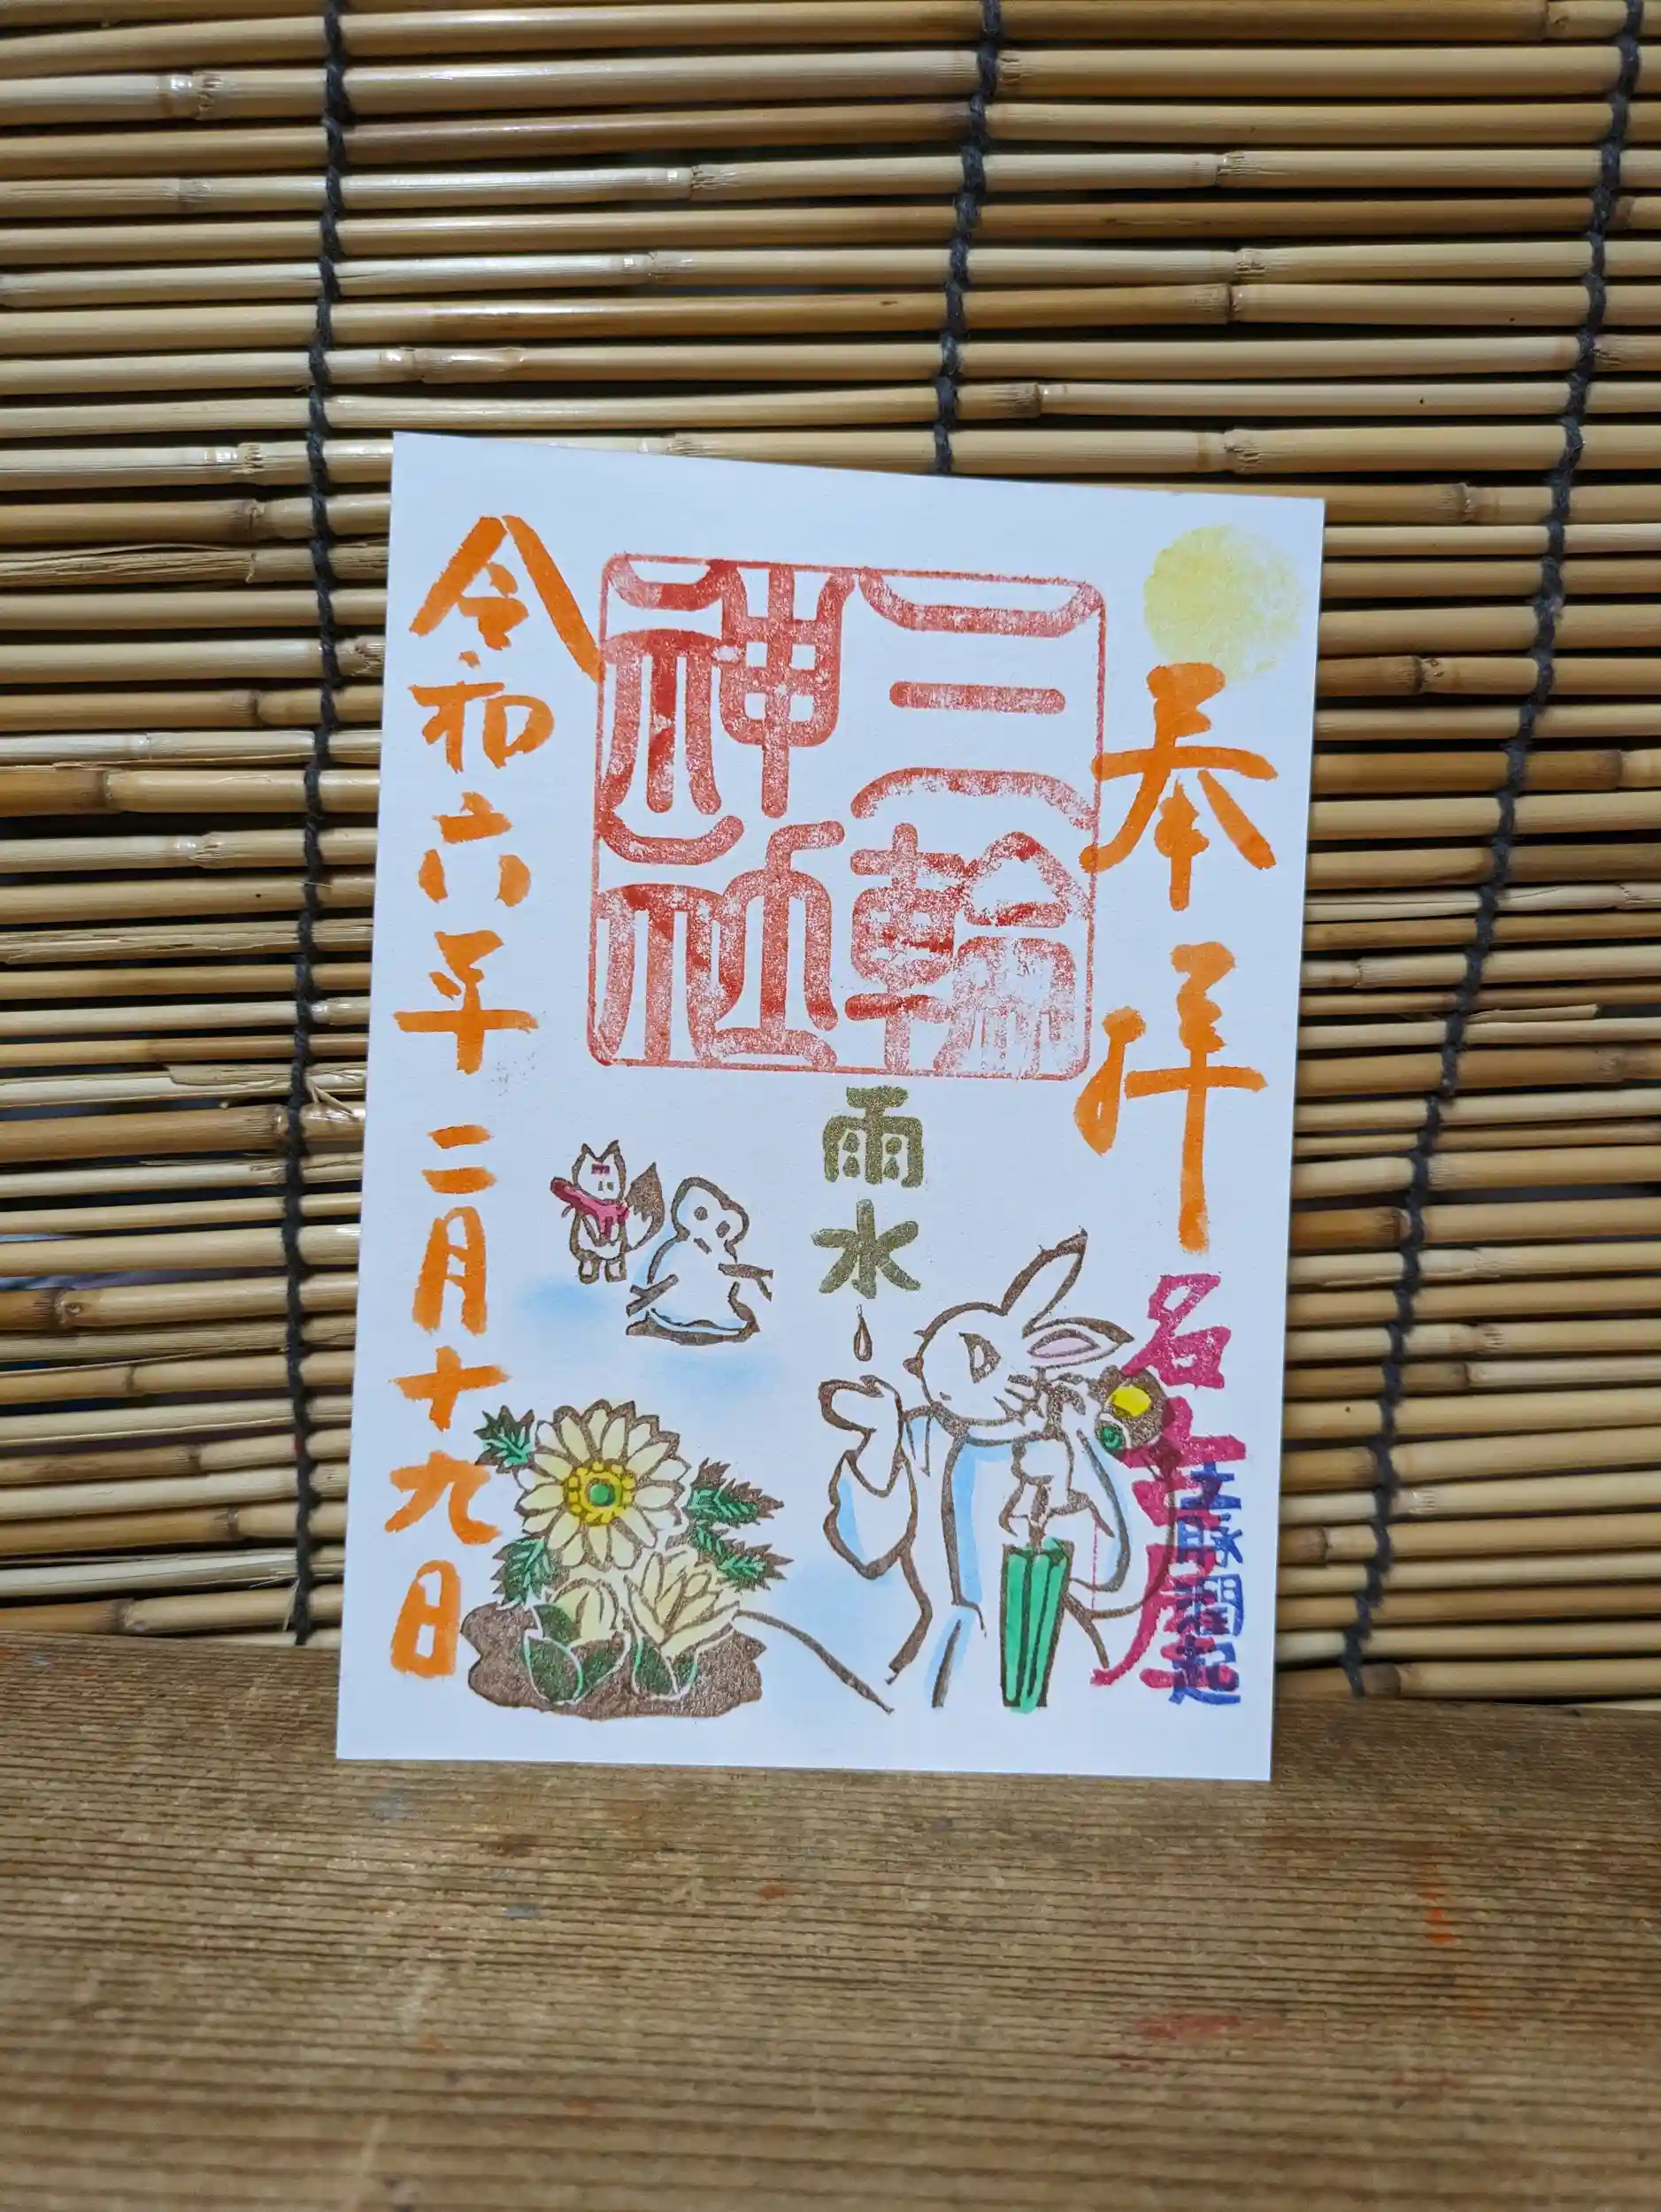 奉拝
名古屋
三輪
神社
雨水
令和六年二月十九日